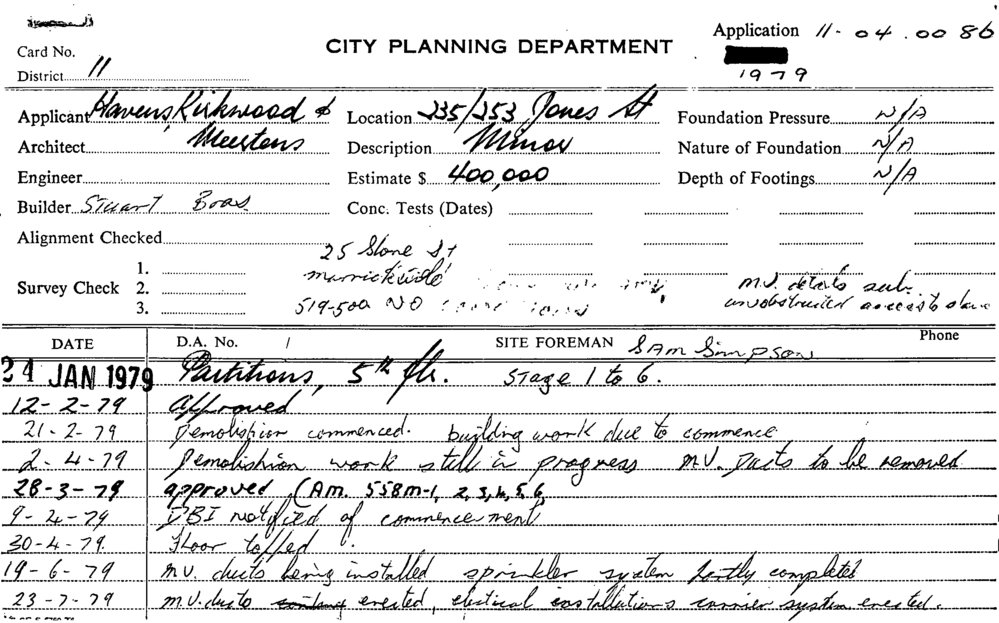 Application 11-04.0086
Card No. CITY PLANNING DEPARTMENT
District 11 1979
Applicant Havens, Kirkwood & Location 235/253 Jones St Foundation Pressure N/A
Architect Meertens Description Minor Nature of Foundation N/A
Engineer Estimate $ 400,000 Depth of Footings N/A
Builder Stuart Bros Conc. Tests (Dates)
Alignment Checked
25 Slone St
1. Marrickville
Survey Check 2. M.V. details sub.
3. 519-500 NO unobstructed access to
DATE D.A. No. SITE FOREMAN SAM SIMPSON Phone
24 JAN 1979 Partitions, 5th flr. Stage 1 to 6.
12-2-79 Approved
21-2-79 Demolishion commenced. building work due to commence
2-4-79 Demolishion work still in progress M.V. Ducts to be removed
28-3-79 approved (Am. 558m-1, 2, 3, 4, 5, 6,
9-4-79 DBI notified of commencement
30-4-79. Floor toffed.
19-6-79 M.V. ducts being installed sprinkler system partly completed
23-7-79 M.V. ducts erected, electrical installations carrier system erected.